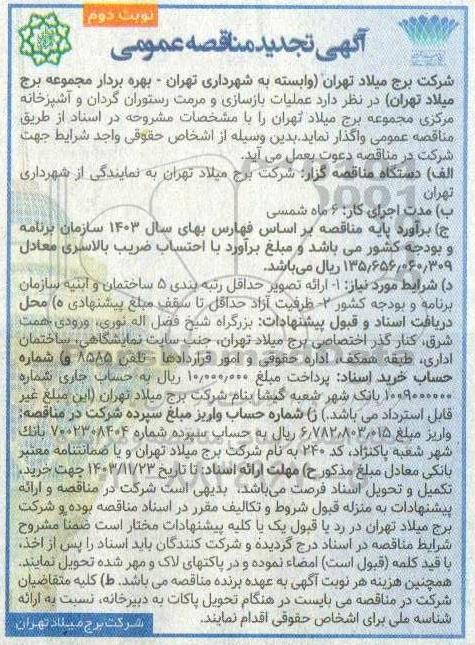 نوبت دوم
آگهی تجدید مناقصه عمومی
شرکت برج میلاد تهران (وابسته به شهرداری تهران - بهره بردار مجموعه برج
میلاد تهران) در نظر دارد عملیات بازسازی و مرمت رستوران گردان و آشپزخانه
مرکزی مجموعه برج میلاد تهران را با مشخصات مشروحه در اسناد از طریق
مناقصه عمومی واگذار نماید.بدین وسیله از اشخاص حقوقی واجد شرایط جهت
شرکت در مناقصه دعوت بعمل می آید.
الف) دستگاه مناقصه گزار: شرکت برج میلاد تهران به نمایندگی از شهرداری
تهران
ب) مدت اجرای کار: ۶ ماه شمسی
ج) برآورد پایه مناقصه بر اساس فهارس بهای سال ۱۴۰۳ سازمان برنامه
و بودجه کشور می باشد و مبلغ برآورد با احتساب ضریب بالاسری معادل
۱۳۵٫۶۵۶٫۰۶۰٫۳۰۹ ریال می‌باشد.
د) شرایط مورد نیاز: ۱- ارائه تصویر حداقل رتبه بندی ۵ ساختمان و ابنیه سازمان
برنامه و بودجه کشور ۲- ظرفیت آزاد حداقل تا سقف مبلغ پیشنهادی ه) محل
دریافت اسناد و قبول پیشنهادات: بزرگراه شیخ فضل اله نوری، ورودی همت
شرق، کنار گذر اختصاصی برج میلاد تهران، جنب سایت نمایشگاهی، ساختمان
اداری، طبقه همکف، اداره حقوقی و امور قراردادها - تلفن ۸۵۸۵ و) شماره
حساب خرید اسناد: پرداخت مبلغ ۱۰٫۰۰۰٫۰۰۰ ریال به حساب جاری شماره
۱۰۰۹۰۰۰۰۰۰ بانک شهر شعبه گیشا بنام شرکت برج میلاد تهران (این مبلغ غیر
قابل استرداد می باشد.) ز) شماره حساب واریز مبلغ سپرده شرکت در مناقصه:
واریز مبلغ ۶٫۷۸۲٫۸۰۳٫۰۱۵ ریال به حساب سپرده شماره ۷۰۰۲۳۰۸۴۰۴ بانک
شهر شعبه پاکنژاد، کد ۲۴۰ به نام شرکت برج میلاد تهران و یا ضمانتنامه معتبر
بانکی معادل مبلغ مذکور ح) مهلت ارائه اسناد: تا تاریخ ۱۴۰۳/۱۱/۲۳ جهت خرید،
تکمیل و تحویل اسناد فرصت می‌باشد، بدیهی است شرکت در مناقصه و ارائه
پیشنهادات به منزله قبول شروط و تکالیف مقرر در اسناد مناقصه بوده و شرکت
برج میلاد تهران در رد یا قبول یک یا کلیه پیشنهادات مختار است ضمناً مشروح
شرایط مناقصه در اسناد درج گردیده و شرکت کنندگان باید اسناد را پس از اخذ،
با قید کلمه (قبول است) امضاء نموده و در پاکتهای لاک و مهر شده تحویل نمایند.
همچنین هزینه هر نوبت آگهی به عهده برنده مناقصه می باشد. ط) کلیه متقاضیان
شرکت در مناقصه می بایست در هنگام تحویل پاکات به دبیرخانه، نسبت به ارائه
شناسه ملی برای اشخاص حقوقی اقدام نمایند.
شرکت برج میلاد تهران